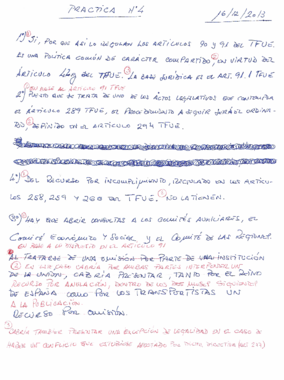 PRACTICA Nº4
16/12/2013
1º) Sí, POR QUE ASÍ LO REGULAN LOS ARTÍCULOS 90 y 91 DEL TFUE.
ES UNA POLÍTICA COMÚN DE CARÁCTER COMPARTIDO, EN VIRTUD DEL
ARTÍCULO 4.2g DEL TFUE. LA BASE JURÍDICA ES EL ART. 91.1 TFUE
2º) PUESTO QUE SE TRATA DE UNO DE LOS ACTOS LEGISLATIVOS QUE CONTEMPLA
EL ARTÍCULO 289 TFUE, EL PROCEDIMIENTO A SEGUIR SERÁ EL ORDINA-
RIO, DEFINIDO EN EL ARTÍCULO 294 TFUE.
4º) DEL RECURSO POR INCUMPLIMIENTO, REGULADO EN LOS ARTÍCU-
LOS 258, 259 y 260 DEL TFUE. NO LA TIENEN.
3º) HAY QUE ABRIR CONSULTAS A LOS COMITÉS AUXILIARES, EL
COMITÉ ECONÓMICO Y SOCIAL y EL COMITÉ DE LAS REGIONES.
EN BASE A LO DISPUESTO EN EL ARTÍCULO 91
AL TRATARSE DE UNA OMISIÓN POR PARTE DE UNA INSTITUCIÓN
DE LA UNIÓN, CABRÍA PRESENTAR, TANTO POR EL REINO
RECURSO POR ANULACIÓN, DENTRO DE LOS DOS MESES SIGUIENTES
DE ESPAÑA COMO POR LOS TRANSPORTISTAS UN
A LA PUBLICACIÓN.
RECURSO POR OMISIÓN.
CABRÍA TAMBIÉN PRESENTAR UNA EXCEPCIÓN DE ILEGALIDAD EN EL CASO DE